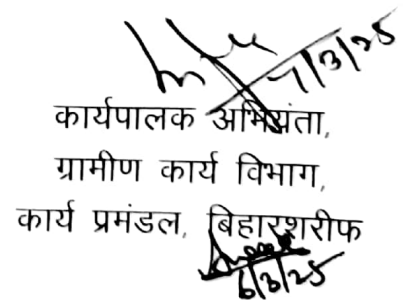 7/3/25
कार्यपालक अभियंता,
ग्रामीण कार्य विभाग,
कार्य प्रमंडल, बिहारशरीफ
6/3/25